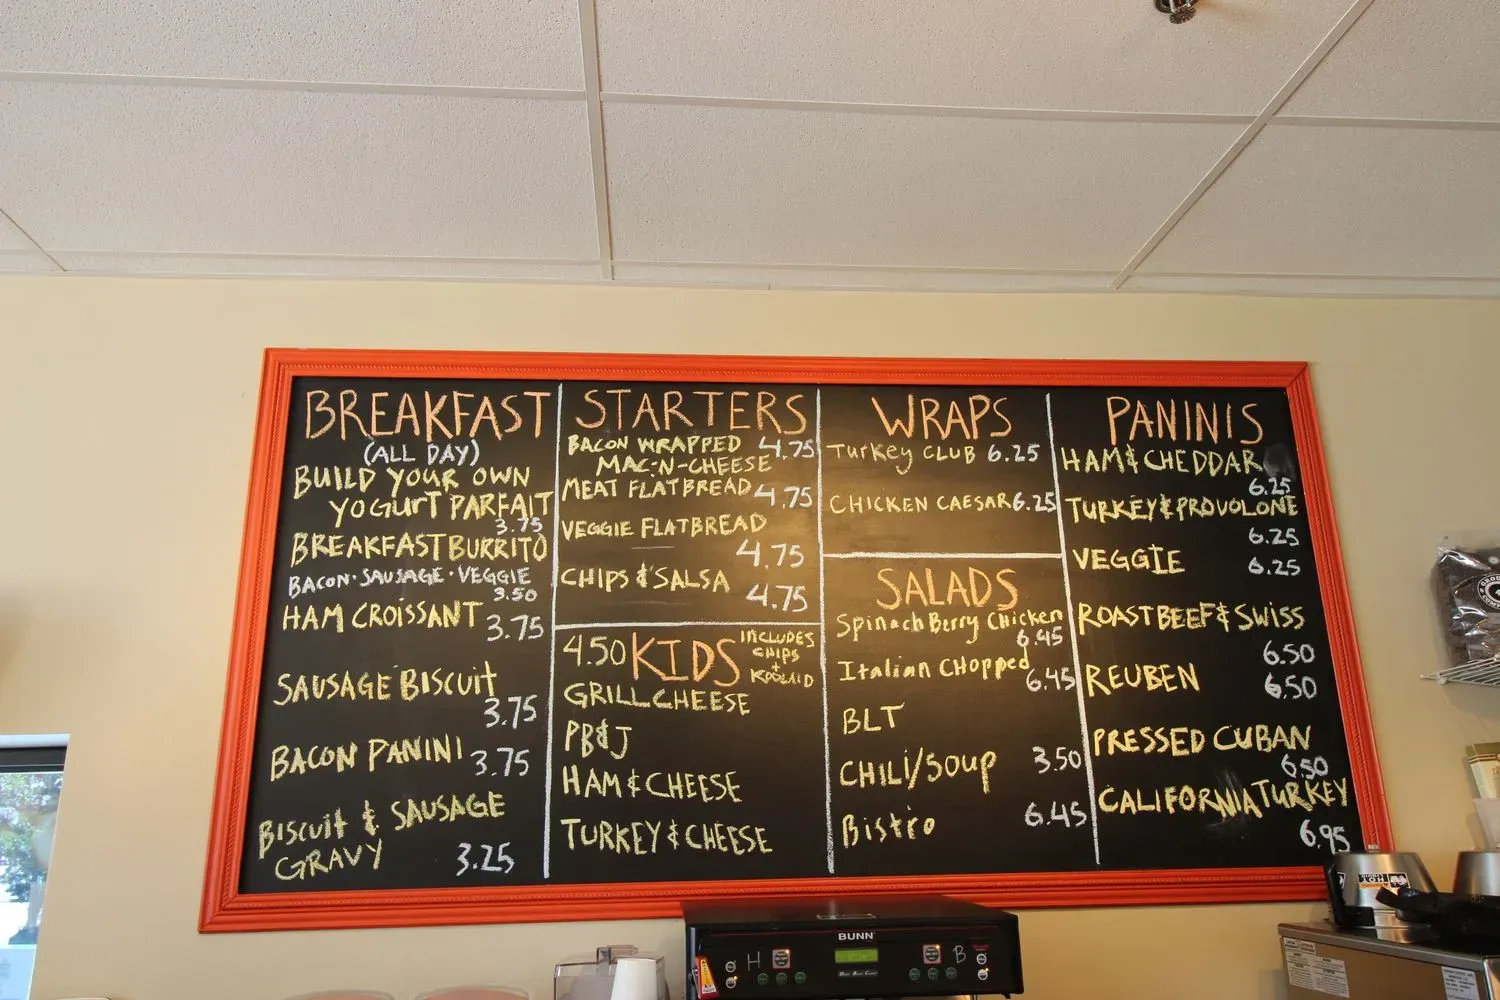 BREAKFAST
(ALL DAY)
BUILD YOUR OWN
YOGURT PARFAIT
3.75
BREAKFAST BURRITO
BACON · SAUSAGE · VEGGIE
3.50
HAM CROISSANT
3.75
SAUSAGE BISCUIT
3.75
BACON PANINI 3.75
BISCUIT & SAUSAGE
GRAVY 3.25
STARTERS
BACON WRAPPED 4.75
MAC-N-CHEESE
MEAT FLATBREAD 4.75
VEGGIE FLATBREAD
4.75
CHIPS & SALSA
4.75
4.50 KIDS
INCLUDES
CHIPS
+
KOOLAID
GRILL CHEESE
PB&J
HAM & CHEESE
TURKEY & CHEESE
WRAPS
Turkey CLUB 6.25
CHICKEN CAESAR 6.25
SALADS
Spinach Berry Chicken
6.45
Italian Chopped
6.45
BLT
CHILI/Soup 3.50
Bistro 6.45
PANINIS
HAM & CHEDDAR
6.25
TURKEY & PROVOLONE
6.25
VEGGIE 6.25
ROAST BEEF & SWISS
6.50
REUBEN 6.50
PRESSED CUBAN
6.50
CALIFORNIA TURKEY
6.95
BUNN
H
B